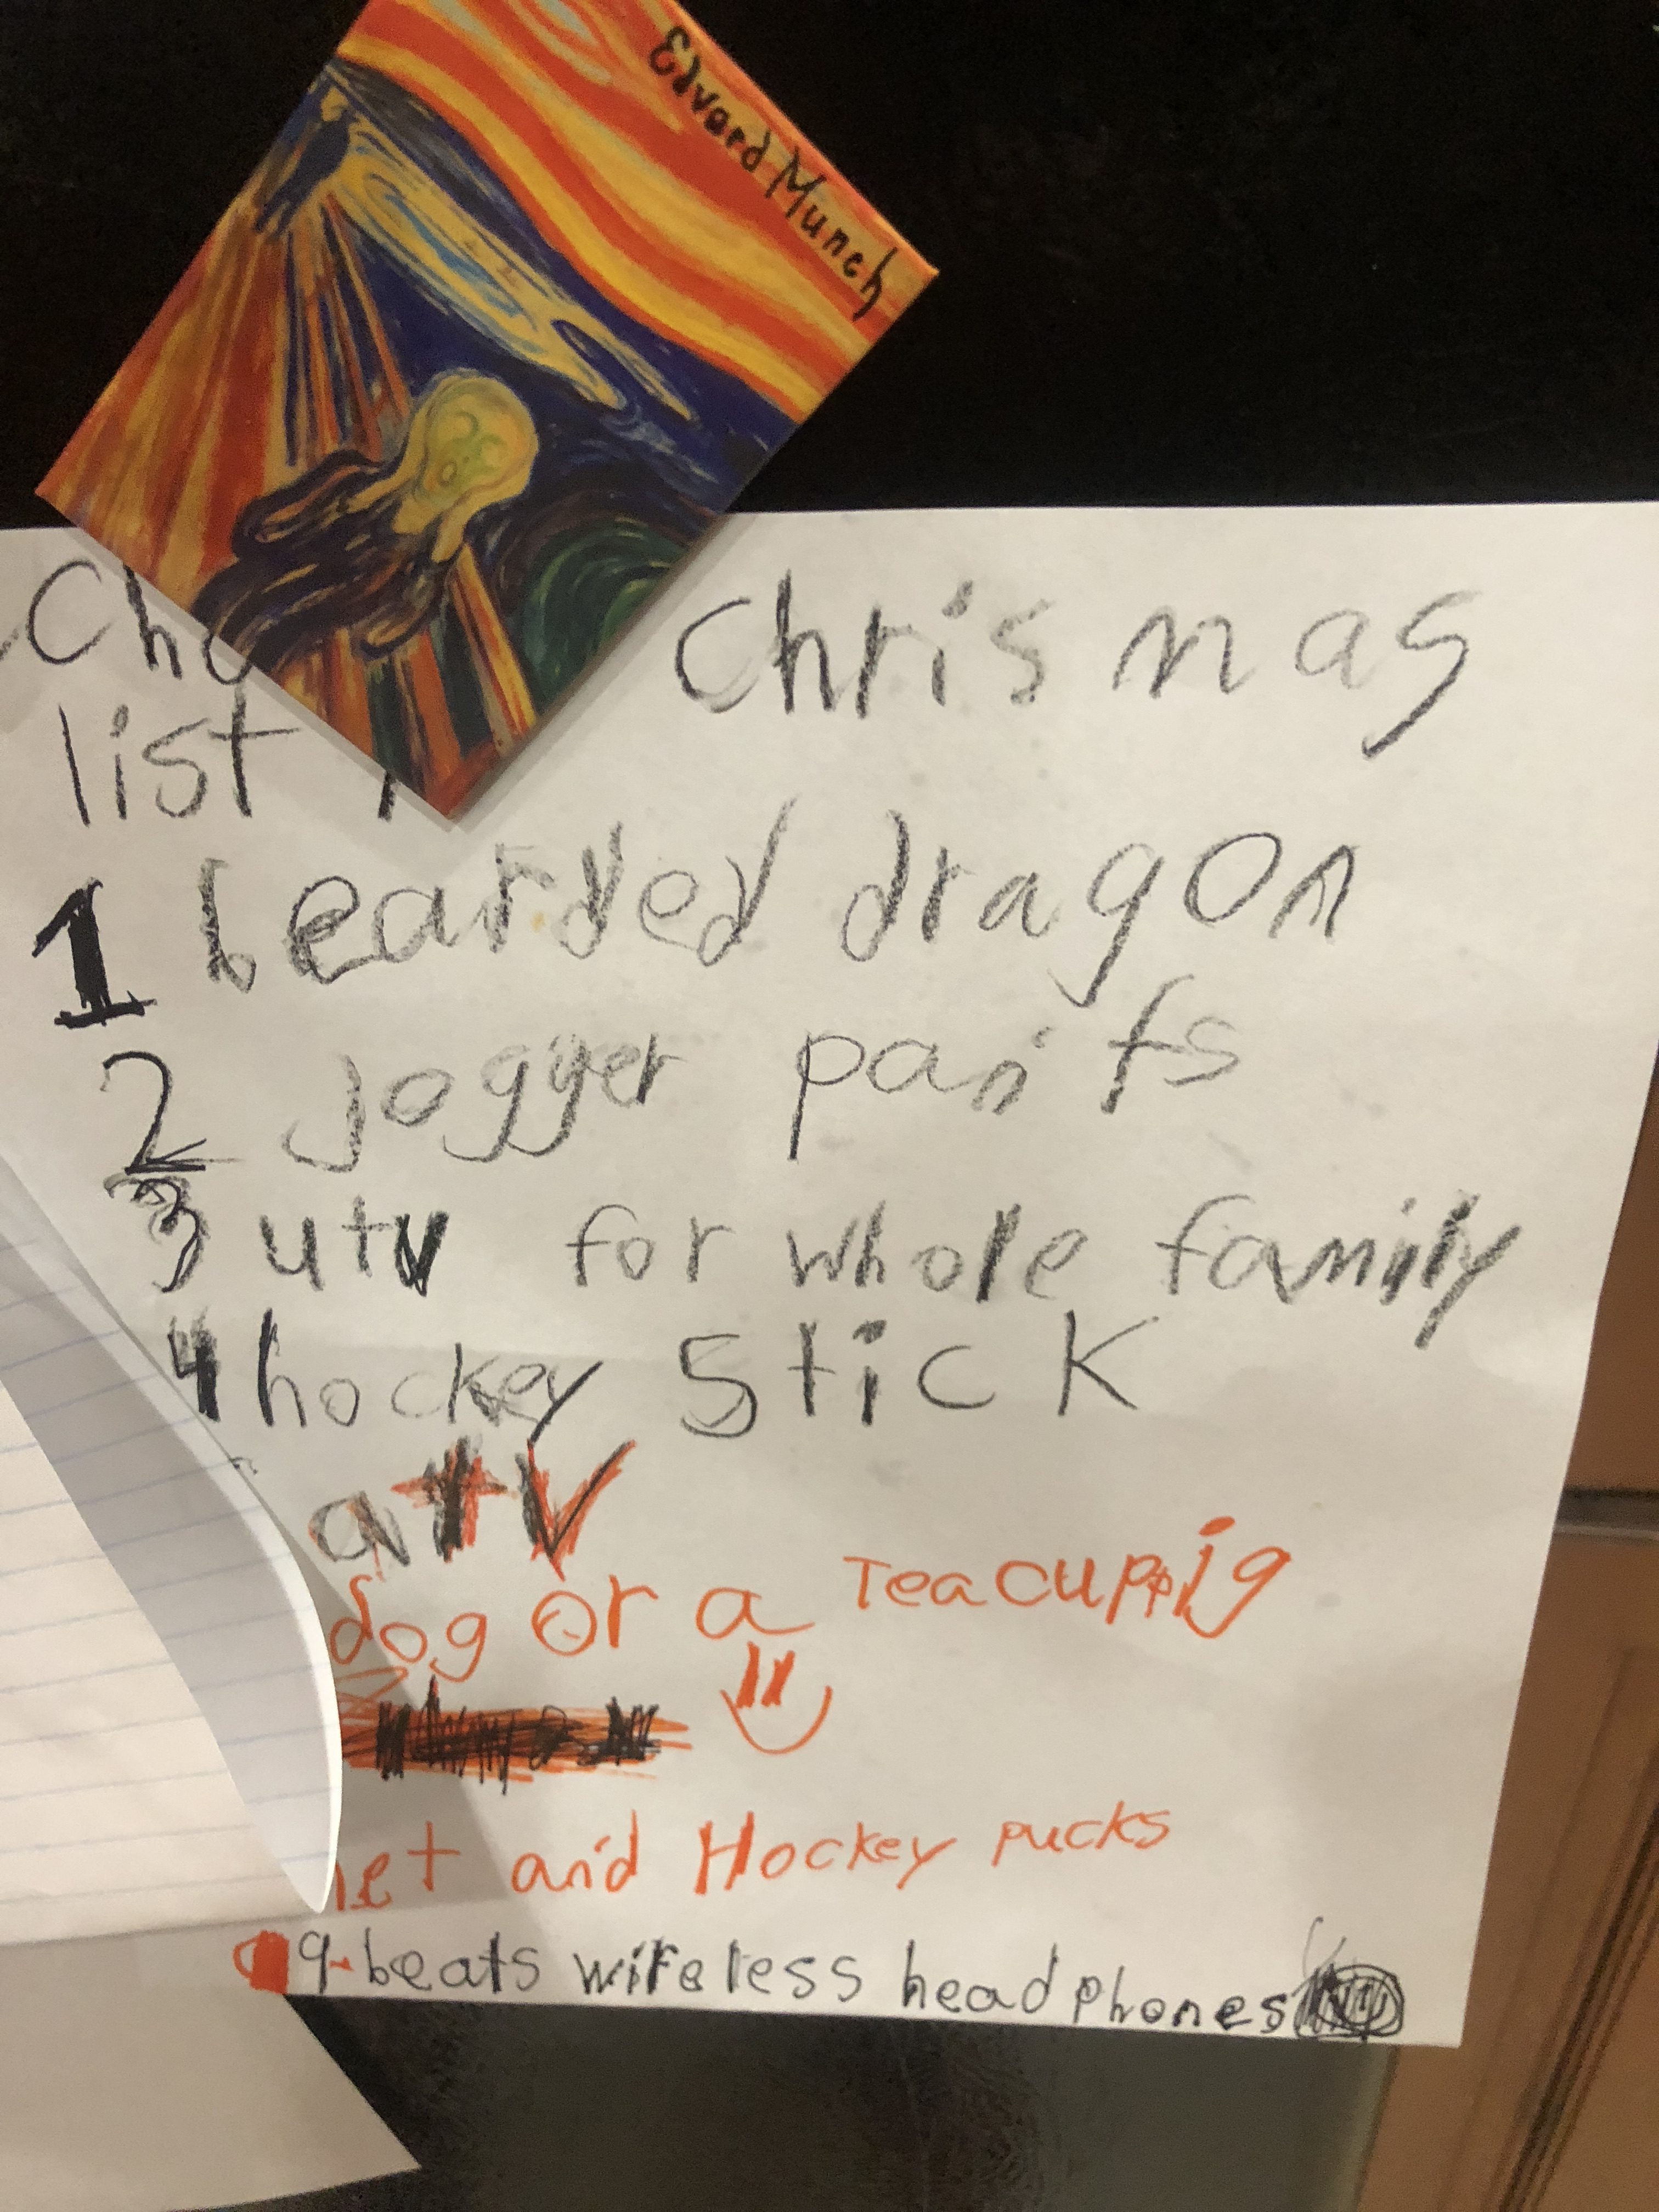 Edvard Munch
Chrismas
list
1 bearded dragon
2 jogger pants
3 utv for whole family
4 hockey stick
atv
dog or a Teacup pig
net and Hockey pucks
9-beats wireless headphones